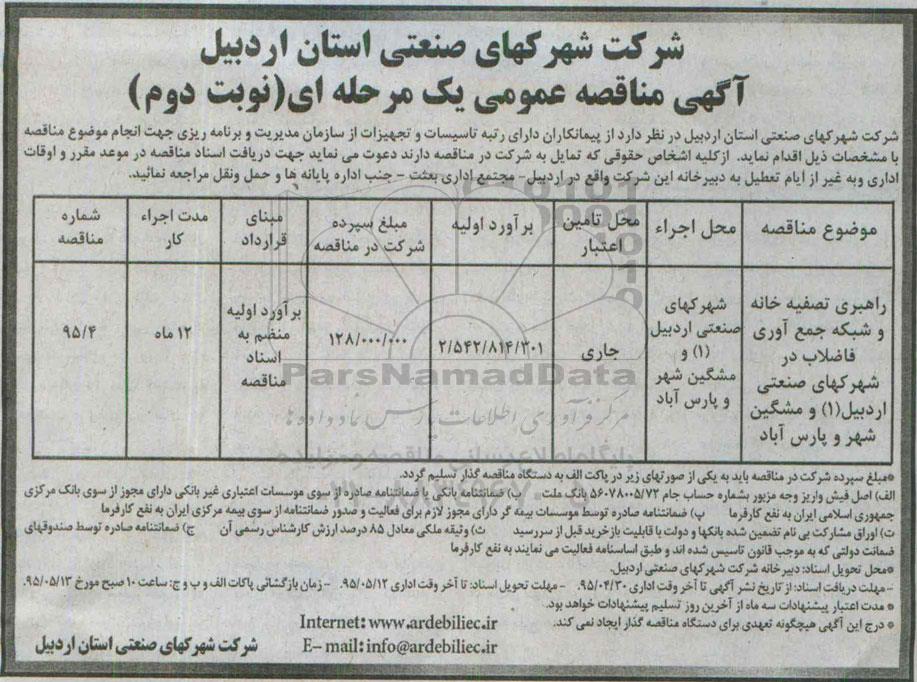 شرکت شهرکهای صنعتی استان اردبیل
آگهی مناقصه عمومی یک مرحله ای(نوبت دوم)
شرکت شهرکهای صنعتی استان اردبیل در نظر دارد از پیمانکاران دارای رتبه تاسیسات و تجهیزات از سازمان مدیریت و برنامه ریزی جهت انجام موضوع مناقصه
با مشخصات ذیل اقدام نماید. ازکلیه اشخاص حقوقی که تمایل به شرکت در مناقصه دارند دعوت می نماید جهت دریافت اسناد مناقصه در موعد مقرر و اوقات
اداری وبه غیر از ایام تعطیل به دبیرخانه این شرکت واقع در اردبیل- مجتمع اداری بعثت - جنب اداره پایانه ها و حمل ونقل مراجعه نمائید.
موضوع مناقصه | محل اجراء | محل تامین اعتبار | برآورد اولیه | مبلغ سپرده شرکت در مناقصه | مبنای قرارداد | مدت اجراء کار | شماره مناقصه
راهبری تصفیه خانه و شبکه جمع آوری فاضلاب در شهرکهای صنعتی اردبیل(۱) و مشگین شهر و پارس آباد | شهرکهای صنعتی اردبیل (۱) و مشگین شهر و پارس آباد | جاری | ۲/۵۴۲/۸۱۴/۳۰۱ | ۱۲۸/۰۰۰/۰۰۰ | برآورد اولیه منضم به اسناد مناقصه | ۱۲ ماه | ۹۵/۴
ParsNamadData
مرکز فرآوری اطلاعات پارس نماد داده ها
پایگاه اطلاع رسانی مناقصه و مزایده
*مبلغ سپرده شرکت در مناقصه باید به یکی از صورتهای زیر در پاکت الف به دستگاه مناقصه گذار تسلیم گردد.
الف) اصل فیش واریز وجه مزبور بشماره حساب جام ۵۶۰۷۸۰۰۵/۷۲ بانک ملت ب) ضمانتنامه بانکی یا ضمانتنامه صادره از سوی موسسات اعتباری غیر بانکی دارای مجوز از سوی بانک مرکزی
جمهوری اسلامی ایران به نفع کارفرما پ) ضمانتنامه صادره توسط موسسات بیمه گر دارای مجوز لازم برای فعالیت و صدور ضمانتنامه از سوی بیمه مرکزی ایران به نفع کارفرما
ت) اوراق مشارکت بی نام تضمین شده بانکها و دولت با قابلیت بازخرید قبل از سررسید ث) وثیقه ملکی معادل ۸۵ درصد ارزش کارشناس رسمی آن ج) ضمانتنامه صادره توسط صندوقهای
ضمانت دولتی که به موجب قانون تاسیس شده اند و طبق اساسنامه فعالیت می نمایند به نفع کارفرما
*محل تحویل اسناد: دبیرخانه شرکت شهرکهای صنعتی اردبیل.
-مهلت دریافت اسناد: از تاریخ نشر آگهی تا آخر وقت اداری ۹۵/۰۴/۳۰. -مهلت تحویل اسناد: تا آخر وقت اداری ۹۵/۰۵/۱۲. -زمان بازگشائی پاکات الف و ب و ج: ساعت ۱۰ صبح مورخ ۹۵/۰۵/۱۳.
* مدت اعتبار پیشنهادات سه ماه از آخرین روز تسلیم پیشنهادات خواهد بود.
* درج این آگهی هیچگونه تعهدی برای دستگاه مناقصه گذار ایجاد نمی کند.
Internet: www.ardebiliec.ir
E-mail: info@ardebiliec.ir
شرکت شهرکهای صنعتی استان اردبیل